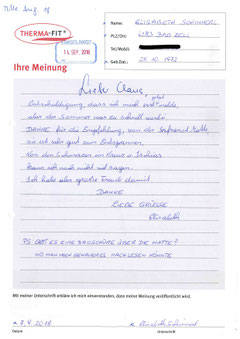 THERMA-FIT®
14. SEP. 2018
Name:
ELISABETH
PLZ/Ort:
4283 BAD ZELL
Tel/Mobil:
Geb.Dat.:
28. 10. 1972
Ihre Meinung
Liebe Claus,
Entschuldigung, dass ich mich erst jetzt melde,
aber der Sommer war zu schnell vorbei.
DANKE für die Empfehlung, von der Matte,
es ist sehr gut zum Entspannen.
Von den Schmerzen im Kreuz u. Ischias
kann ich noch nicht viel sagen.
Ich habe sehr große Freude damit
DANKE
LIEBE GRÜSSE
Elisabeth
PS: GIBT ES EINE BROSCHÜRE ÜBER DIE MATTE?
WO MAN NOCH GENAUERES NACHLESEN KÖNNTE
Mit meiner Unterschrift erkläre ich mich einverstanden, dass meine Meinung veröffentlicht wird.
7.9.2018
Datum
Unterschrift